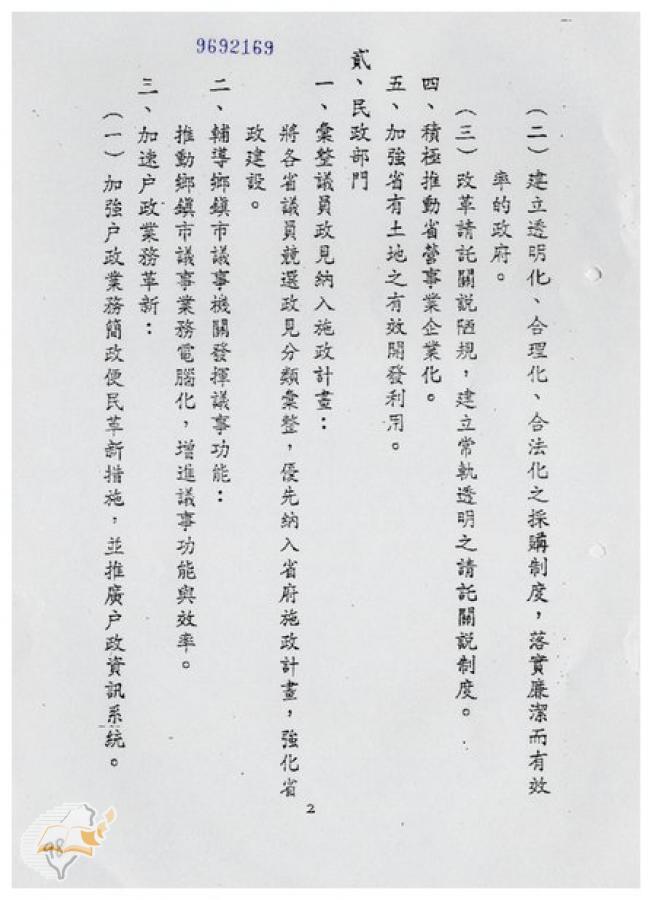 9692169
（二）建立透明化、合理化、合法化之採購制度，落實廉潔而有效
率的政府。
（三）改革請託關說陋規，建立常軌透明之請託關說制度。
四、積極推動省營事業企業化。
五、加強省有土地之有效開發利用。
貳、民政部門
一、彙整議員政見納入施政計畫：
將各省議員競選政見分類彙整，優先納入省府施政計畫，強化省
政建設。
二、輔導鄉鎮市議事機關發揮議事功能：
推動鄉鎮市議事業務電腦化，增進議事功能與效率。
三、加速户政業務革新：
（一）加強户政業務簡政便民革新措施，並推廣户政資訊系統。
2
98